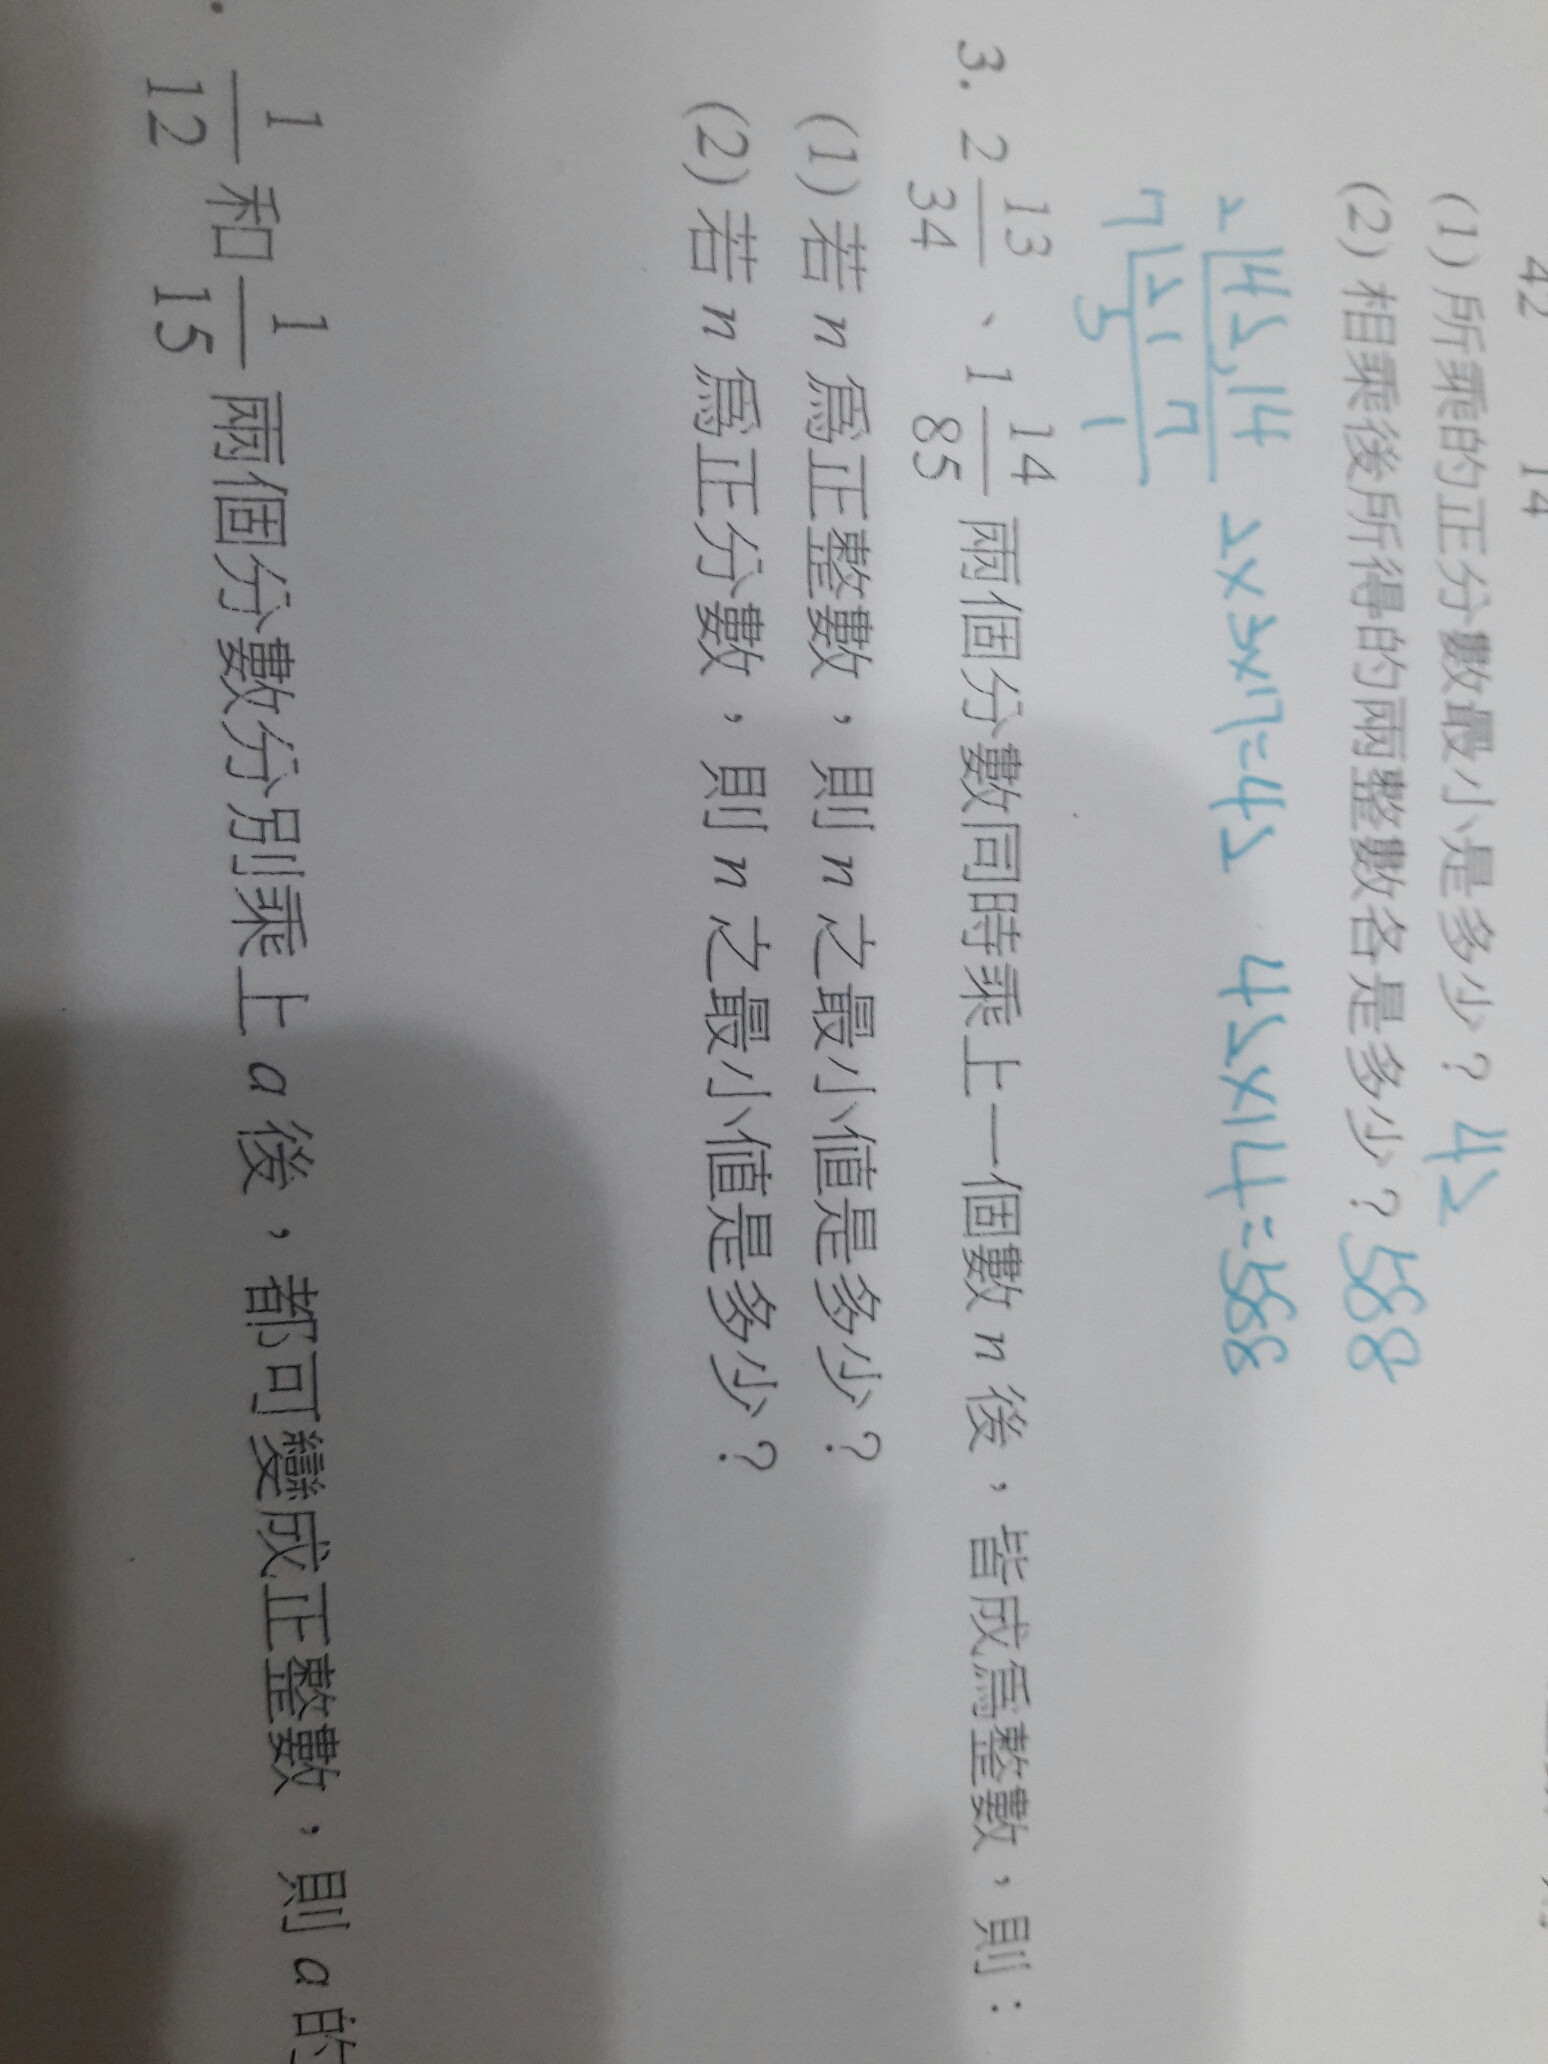 42 14
(1) 所乘的正分數最小是多少？ 42
(2) 相乘後所得的兩整數各是多少？ 588
2 42,14 2×3×7=42 42×14=588
7 21 7
3 1
3. 2 13/34 、1 14/85 兩個分數同時乘上一個數 n 後，皆成為整數，則：
(1) 若 n 為正整數，則 n 之最小值是多少？
(2) 若 n 為正分數，則 n 之最小值是多少？
1/12 和 1/15 兩個分數分別乘上 a 後，都可變成正整數，則 a 的